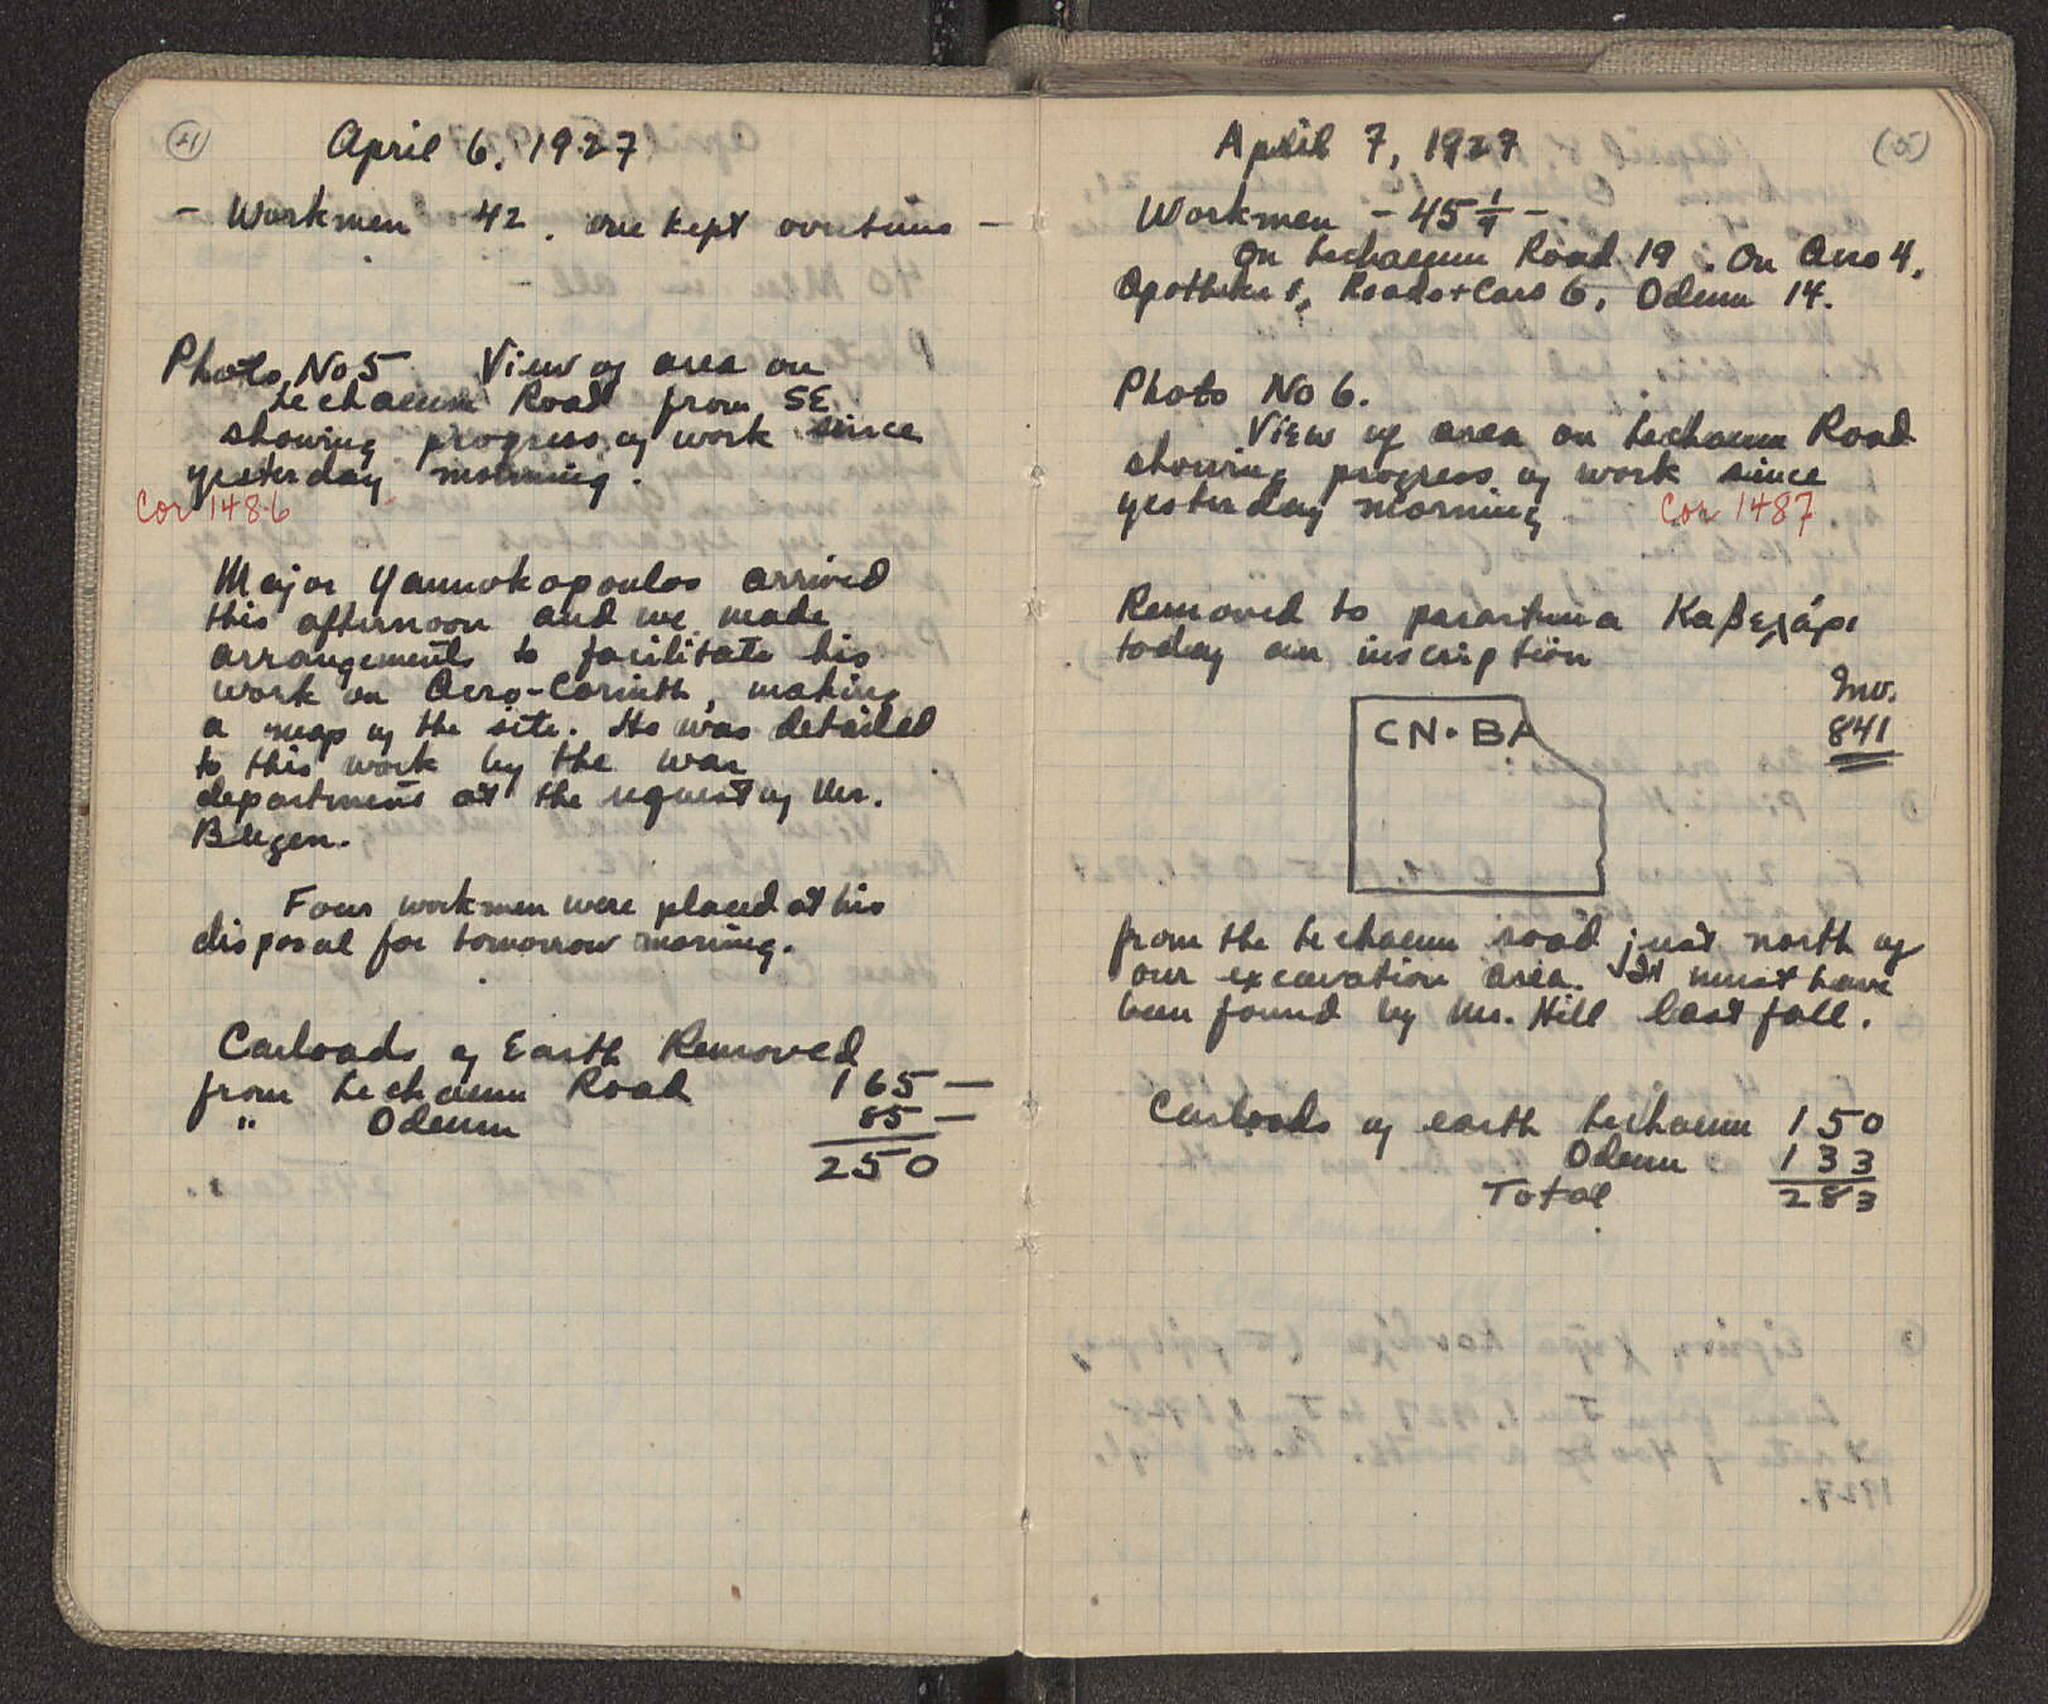 (4)
April 6, 1927
- Workmen 42. one kept overtime -
Photo No 5 View of area on
Lechaeum Road from SE
showing progress of work since
yesterday morning.
Cor 1486
Major Yannokopoulos arrived
this afternoon and we made
arrangements to facilitate his
work on Acro-Corinth, making
a map of the site. He was detailed
to this work by the war
department at the request of Mr.
Blegen.
Four workmen were placed at his
disposal for tomorrow morning.
Carloads of Earth Removed
from Lechaeum Road 165 -
" Odeum 85 -
250
(5)
April 7, 1927
Workmen - 45 1/4 -
On Lechaeum Road 19. On Acro 4,
Apotheke 1, Roads + Cars 6, Odeum 14.
Photo No 6.
View of area on Lechaeum Road
showing progress of work since
yesterday morning Cor 1487
Removed to parartima Καβελάρι
today an inscription
Inv.
841
CN·BA
from the Lechaeum road just north of
our excavation area. It must have
been found by Mr. Hill last fall.
Carloads of earth Lechaeum 150
Odeum 133
Total 283